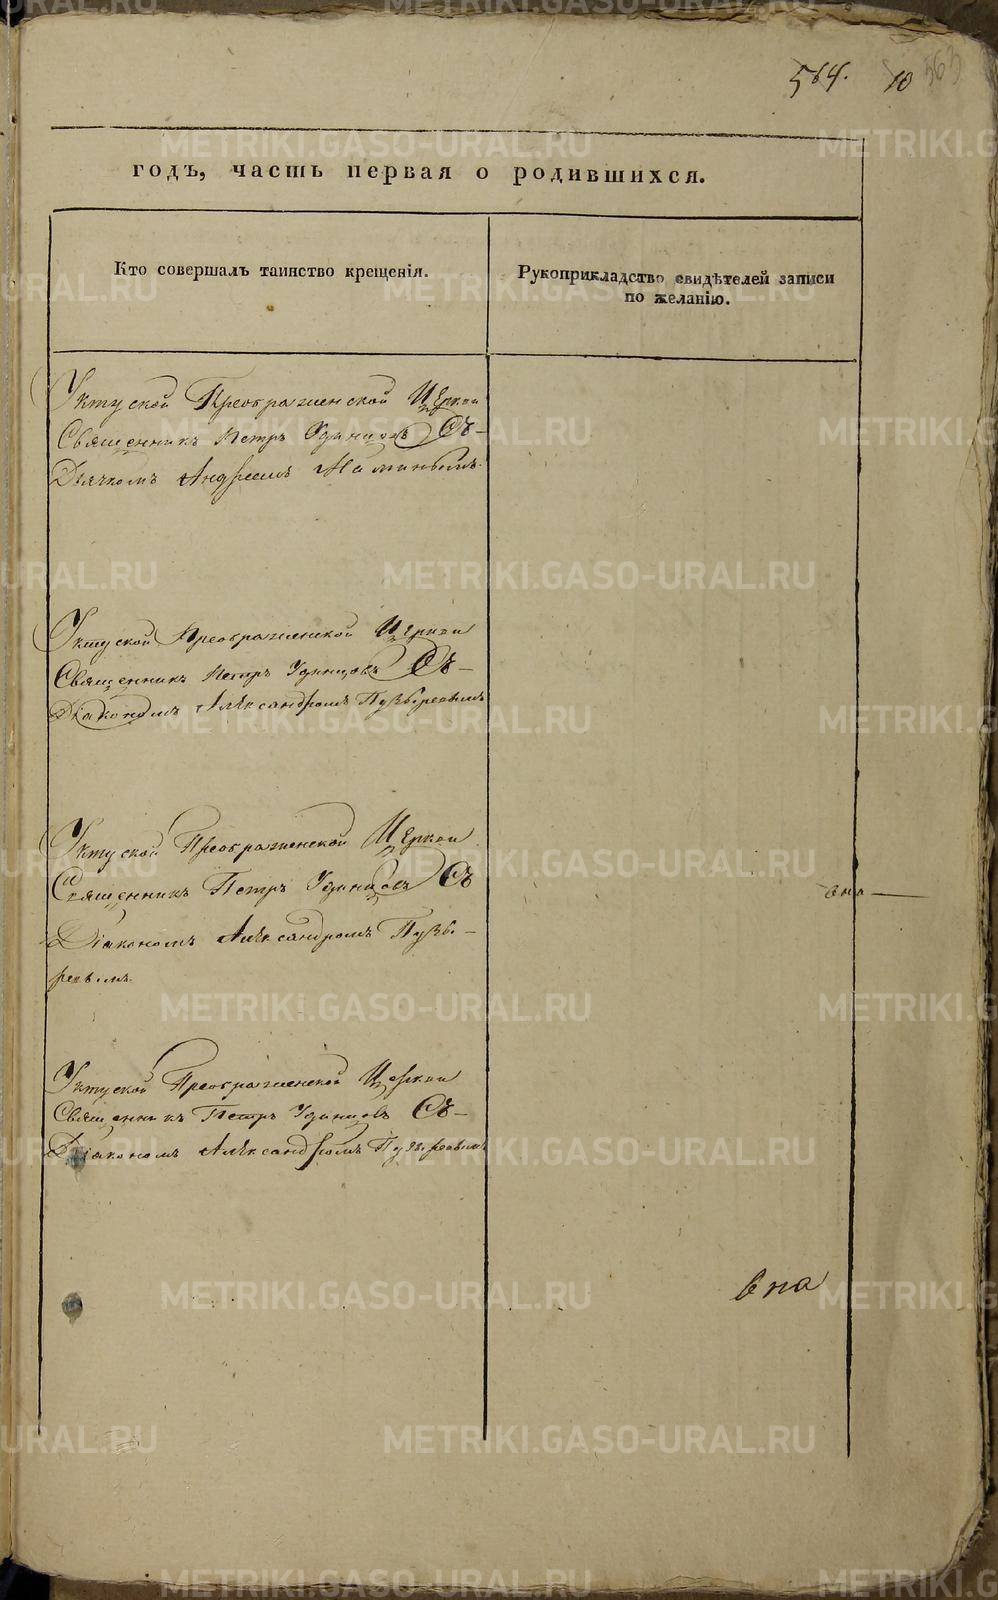 564. 10 563
годъ, часть первая о родившихся.
Кто совершалъ таинство крещенія.
Рукоприкладство свидѣтелей записи
по желанію.
Уктуской Преображенской Церкви
Священникъ Петръ Удинцовъ Съ-
Дьячкомъ Андреемъ
Уктуской Преображенской Церкви
Священникъ Петръ Удинцовъ Съ-
Діакономъ Александромъ Пузыревымъ
Уктуской Преображенской Церкви
Священникъ Петръ Удинцовъ Съ
Діакономъ Александромъ Пузы-
ревымъ.
Уктуской Преображенской Церкви
Священникъ Петръ Удинцовъ Съ-
Діакономъ Александромъ Пузыревымъ
METRIKI.GASO-URAL.RU